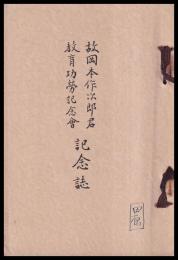 故岡本作次郎君
教育功労記念會
記念誌